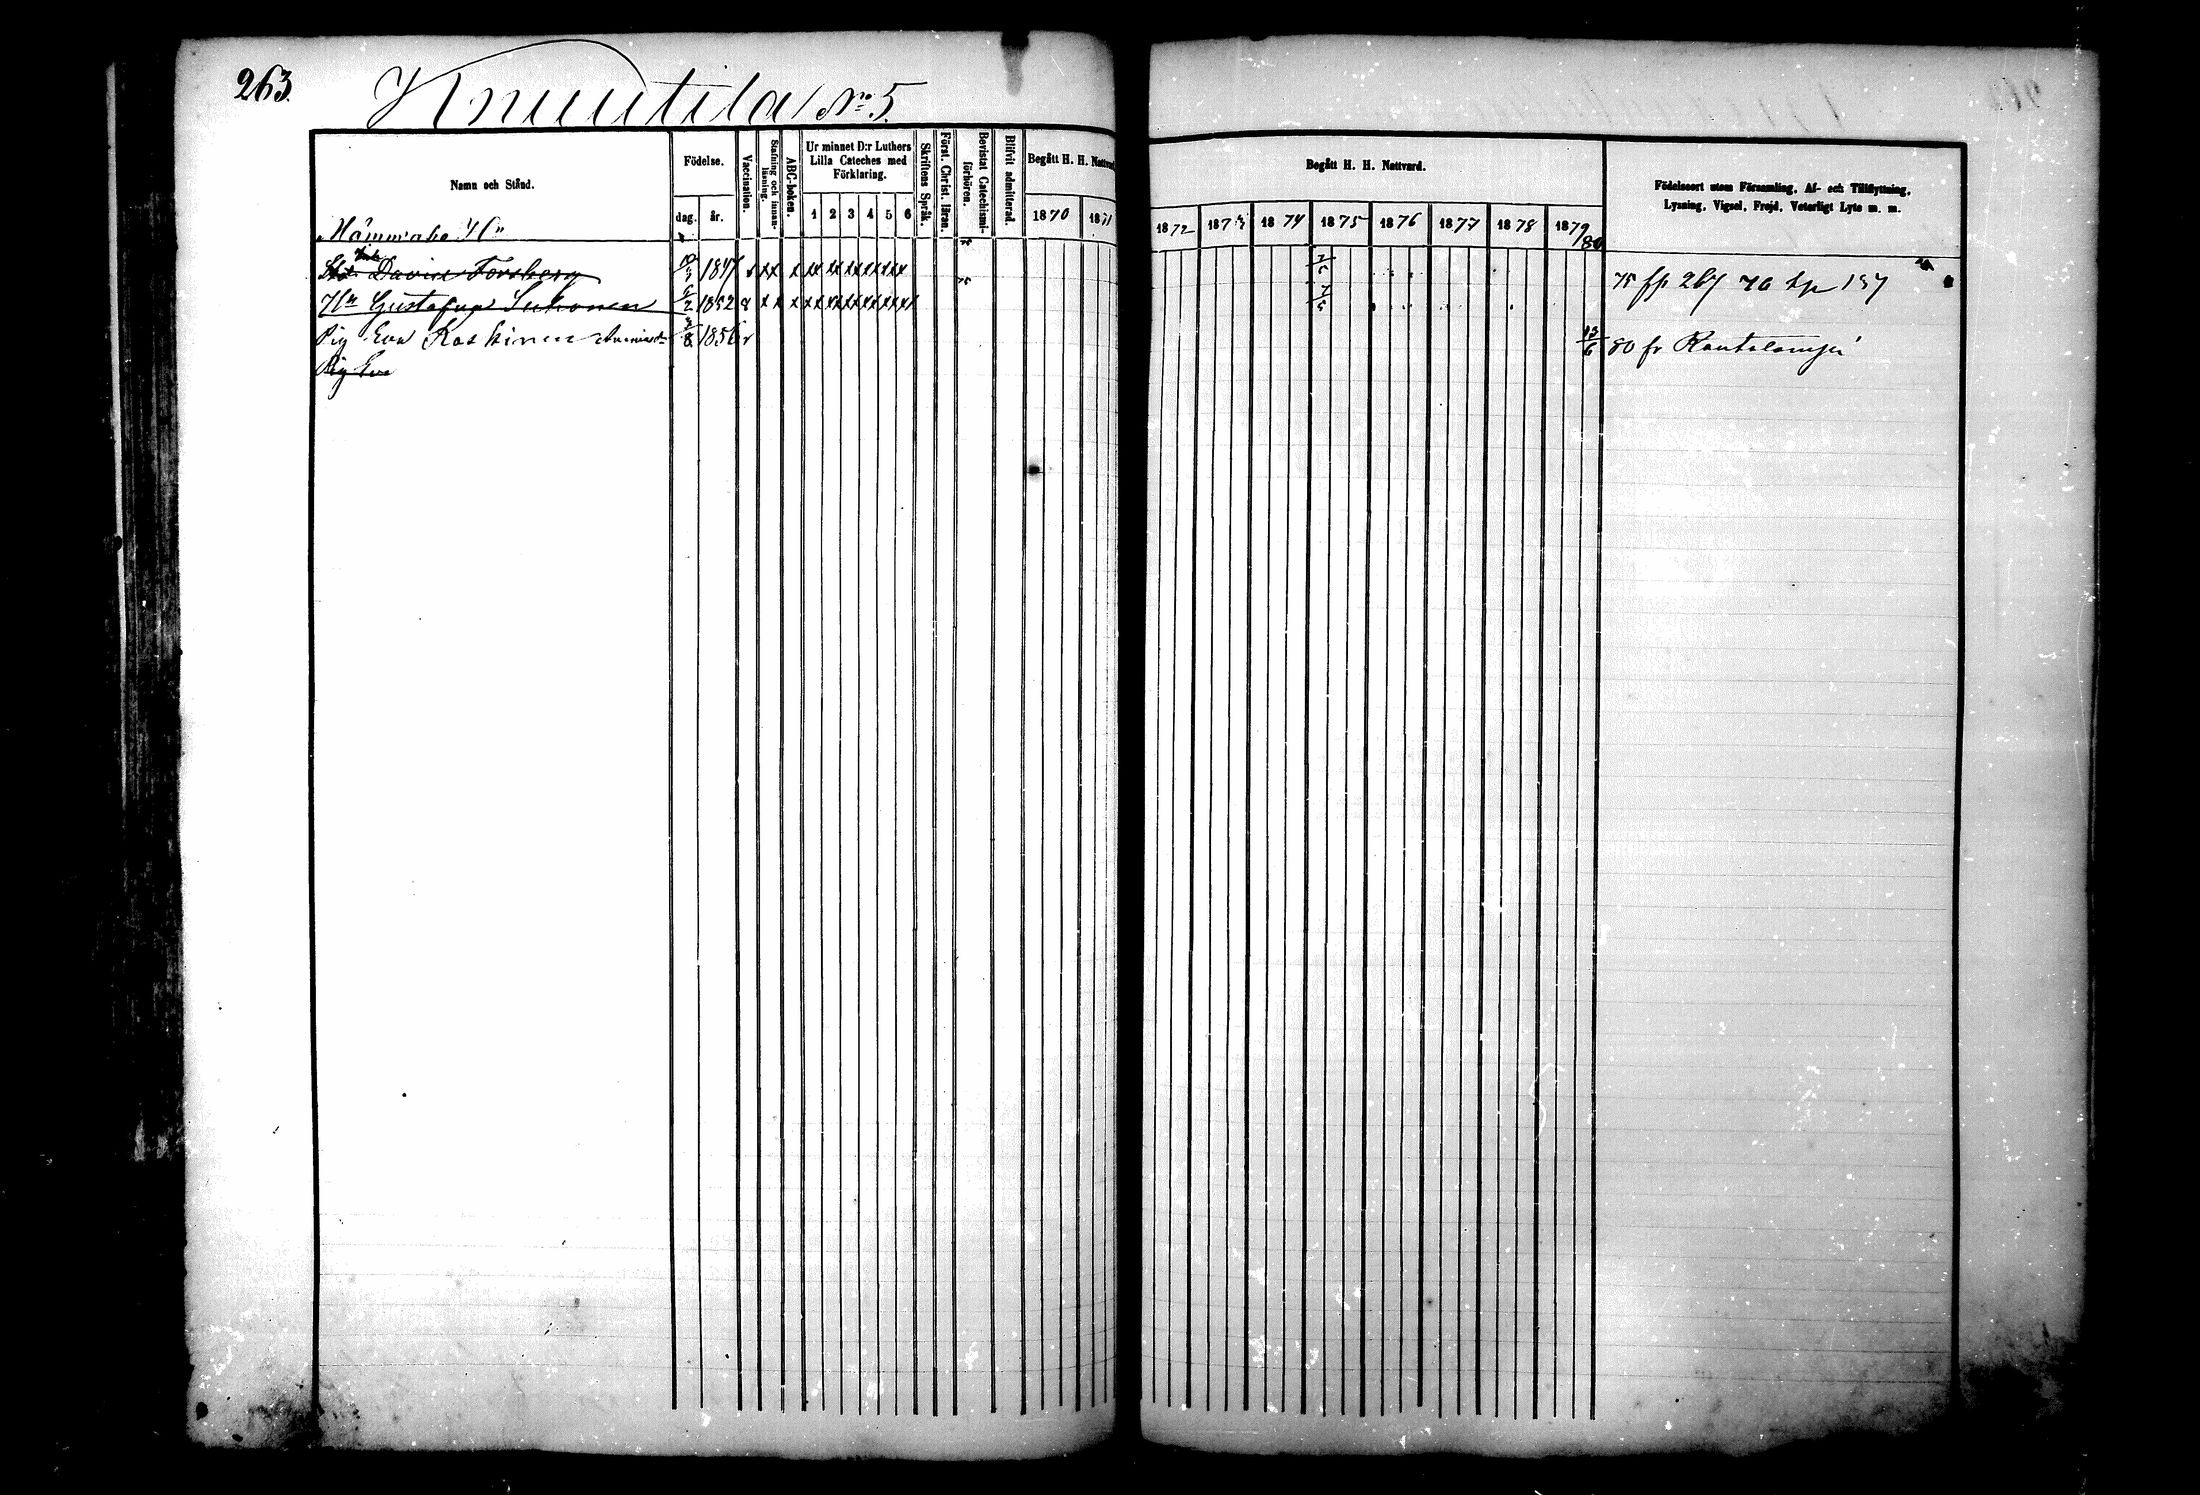 263.
Knuutila No 5.
Namn och Stånd.
Födelse.
dag. år.
Vaccination.
Stafning och innanläsning.
ABC-boken.
Ur minnet D:r Luthers Lilla Cateches med Förklaring.
1 2 3 4 5 6
Skriftens Språk.
Först. Christ. läran.
Bevistat Catechismiförhören.
Blifvit admitterad.
Begått H. H. Nattvard
1870 1871
Begått H. H. Nattvard.
1872 1873 1874 1875 1876 1877 1878 1879/80
Födelseort utom Församling, Af- och Tillflyttning,
Lysning, Vigsel, Frejd, Veterligt Lyte m. m.
David Forsberg 1847 x xx x xx xx xx xx xx xx 7/5 75 fp 267 76 tp 157
Hu Gustafva Suhonen 6/2 1852 x x x xx xx xx xx xx xx 7/5
Pig Eva Koskinen 3/8 1856 v 15/6 80 fr Rautalampi
Pig Eva